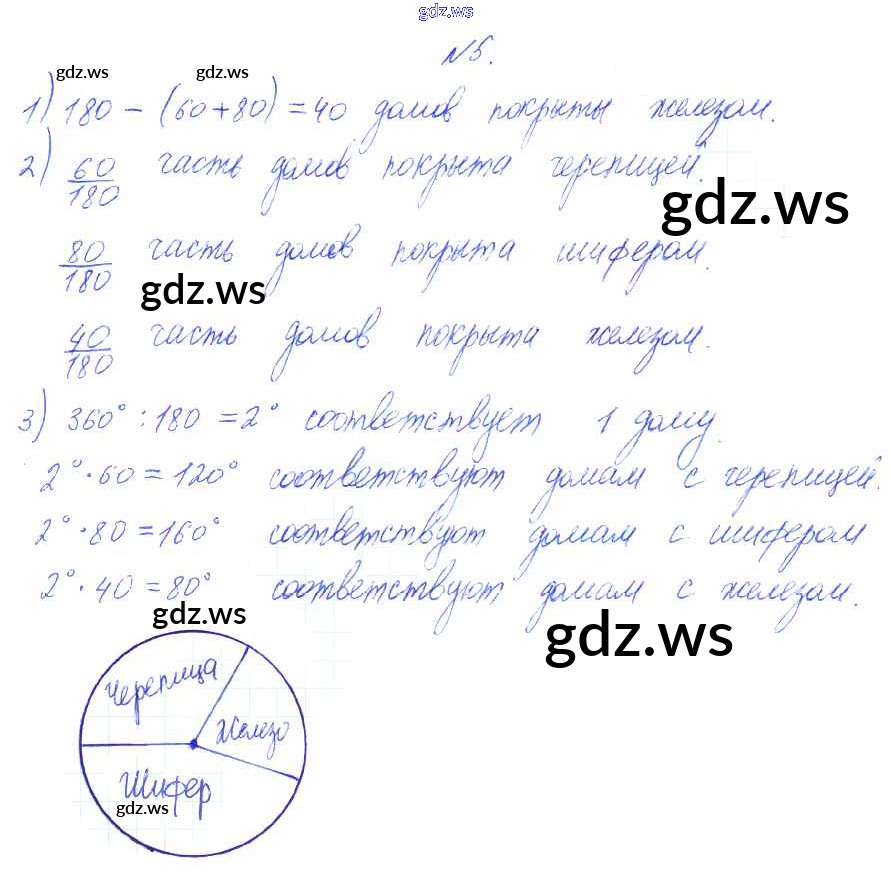 gdz.ws
№5.
gdz.ws gdz.ws
1) 180 - (60+80) = 40 домов покрыты железом.
2) 60/180 часть домов покрыта черепицей.
gdz.ws
80/180 часть домов покрыта шифером.
gdz.ws
40/180 часть домов покрыта железом.
3) 360° : 180 = 2° соответствует 1 дому.
2° · 60 = 120° соответствуют домам с черепицей.
2° · 80 = 160° соответствуют домам с шифером
2° · 40 = 80° соответствуют домам с железом.
gdz.ws
gdz.ws
Черепица
Железо
Шифер
gdz.ws